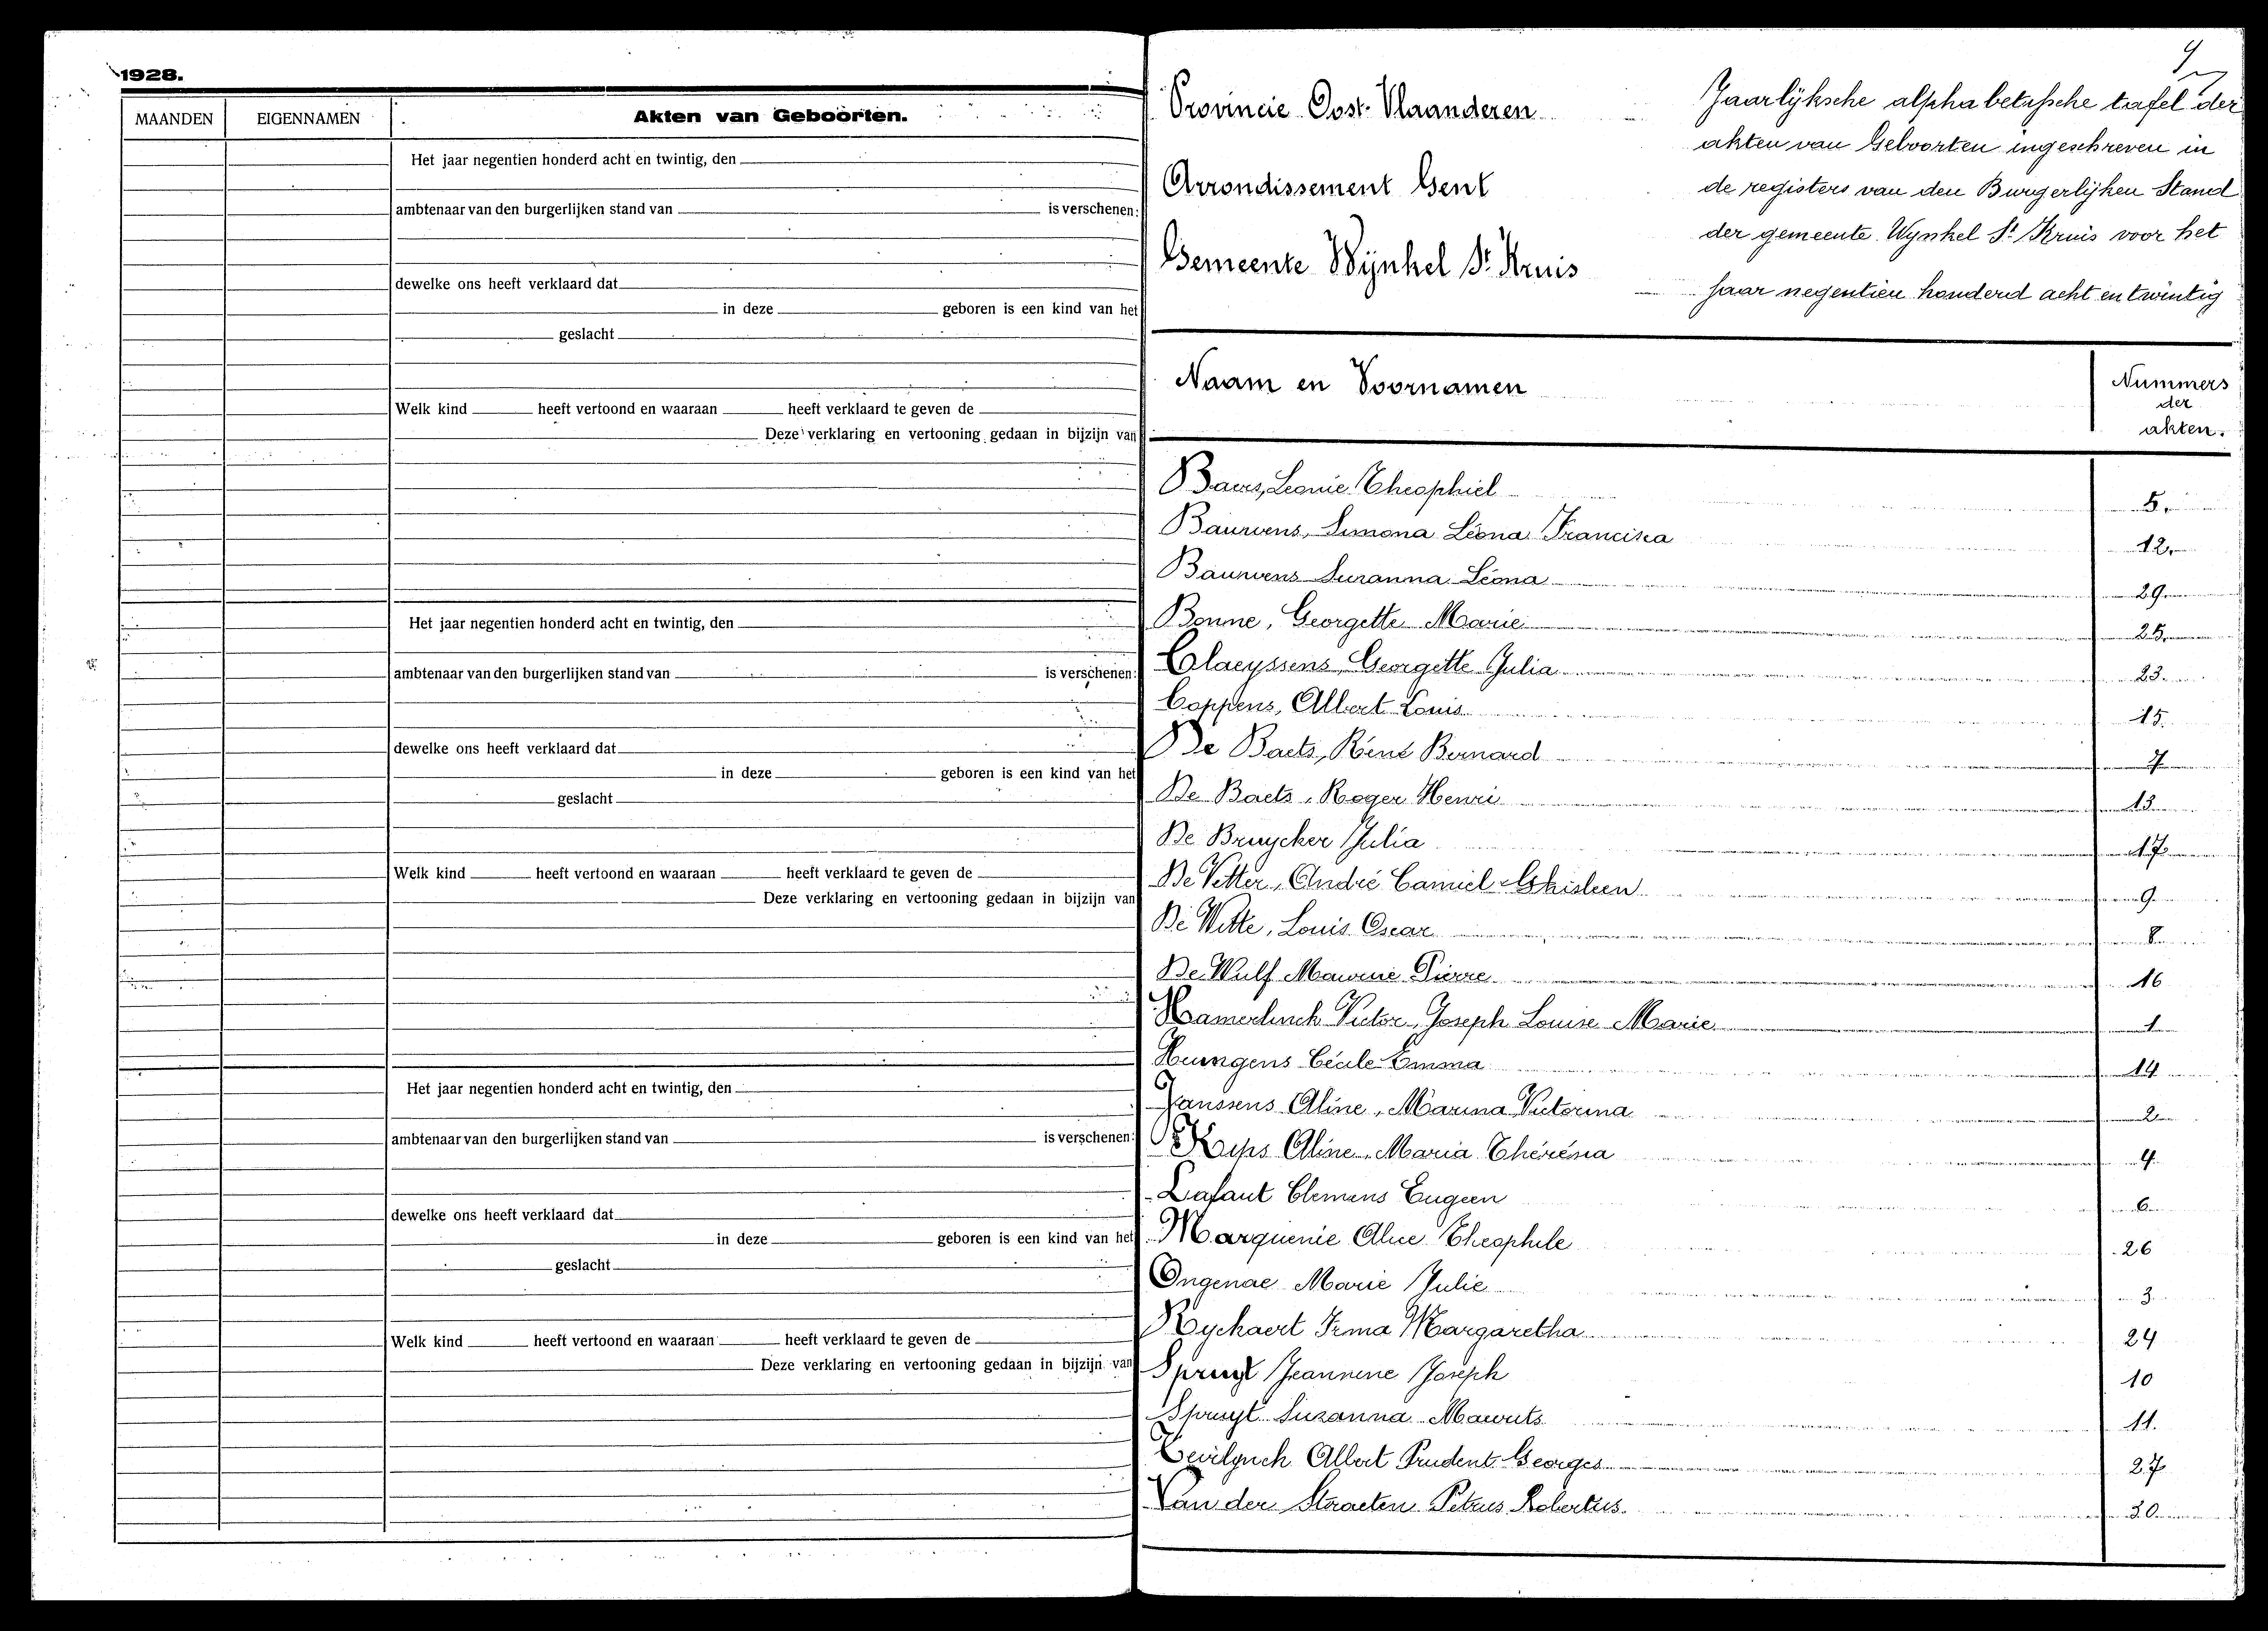 1928.
MAANDEN EIGENNAMEN Akten van Geboorten.
Het jaar negentien honderd acht en twintig, den
ambtenaar van den burgerlijken stand van is verschenen:
dewelke ons heeft verklaard dat
in deze geboren is een kind van het
geslacht
Welk kind heeft vertoond en waaraan heeft verklaard te geven de
Deze verklaring en vertooning gedaan in bijzijn van
Het jaar negentien honderd acht en twintig, den
ambtenaar van den burgerlijken stand van is verschenen:
dewelke ons heeft verklaard dat
in deze geboren is een kind van het
geslacht
Welk kind heeft vertoond en waaraan heeft verklaard te geven de
Deze verklaring en vertooning gedaan in bijzijn van
Het jaar negentien honderd acht en twintig, den
ambtenaar van den burgerlijken stand van is verschenen:
dewelke ons heeft verklaard dat
in deze geboren is een kind van het
geslacht
Welk kind heeft vertoond en waaraan heeft verklaard te geven de
Deze verklaring en vertooning gedaan in bijzijn van
9
Provincie Oost-Vlaanderen
Arrondissement Gent
Gemeente Wynkel St. Kruis
Jaarlyksche alphabetische tafel der
akten van Geboorten ingeschreven in
de registers van den Burgerlijken Stand
der gemeente Wynkel St Kruis voor het
jaar negentien honderd acht en twintig
Naam en Voornamen Nummers
der
akten.
Leonie Theophiel 5
Bauwens, Simona Léona Francisca 12
Bauwens Suzanna Léona 29
Bonne, Georgette Marie 25
Claeyssens, Georgette Julia 23
Coppens, Albert Louis 15
De Baets, René Bernard 7
De Baets, Roger Henri 13
De Bruycker Julia 17
De Vetter, André Camiel Ghisleen 9
De Witte, Louis Oscar 8
De Wulf Maurice Pierre 16
Hamerlinck Victor Joseph Louise Marie 1
Huungens Cécile Emma 14
Janssens Aline, Marina Victorina 2
Aline Maria Thérèsia 4
Lafaut Clemens Eugeen 6
Marquenie Alice Theophile 26
Ongenae Marie Julie 3
Ryckaert Irma Margaretha 24
Spruyt Jeannine Joseph 10
Spruyt Suzanna Maurits 11.
Albert Prudent Georges 27
Van der Straeten Petrus Robertus 30